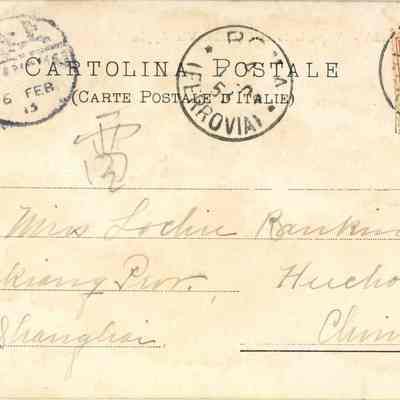 CARTOLINA POSTALE
(CARTE POSTALE D'ITALIE)
ROMA
(FERROVIA)
6 FEB
雷
Miss Lochie Rankin
kiang Prov. Hucho
Shanghai China